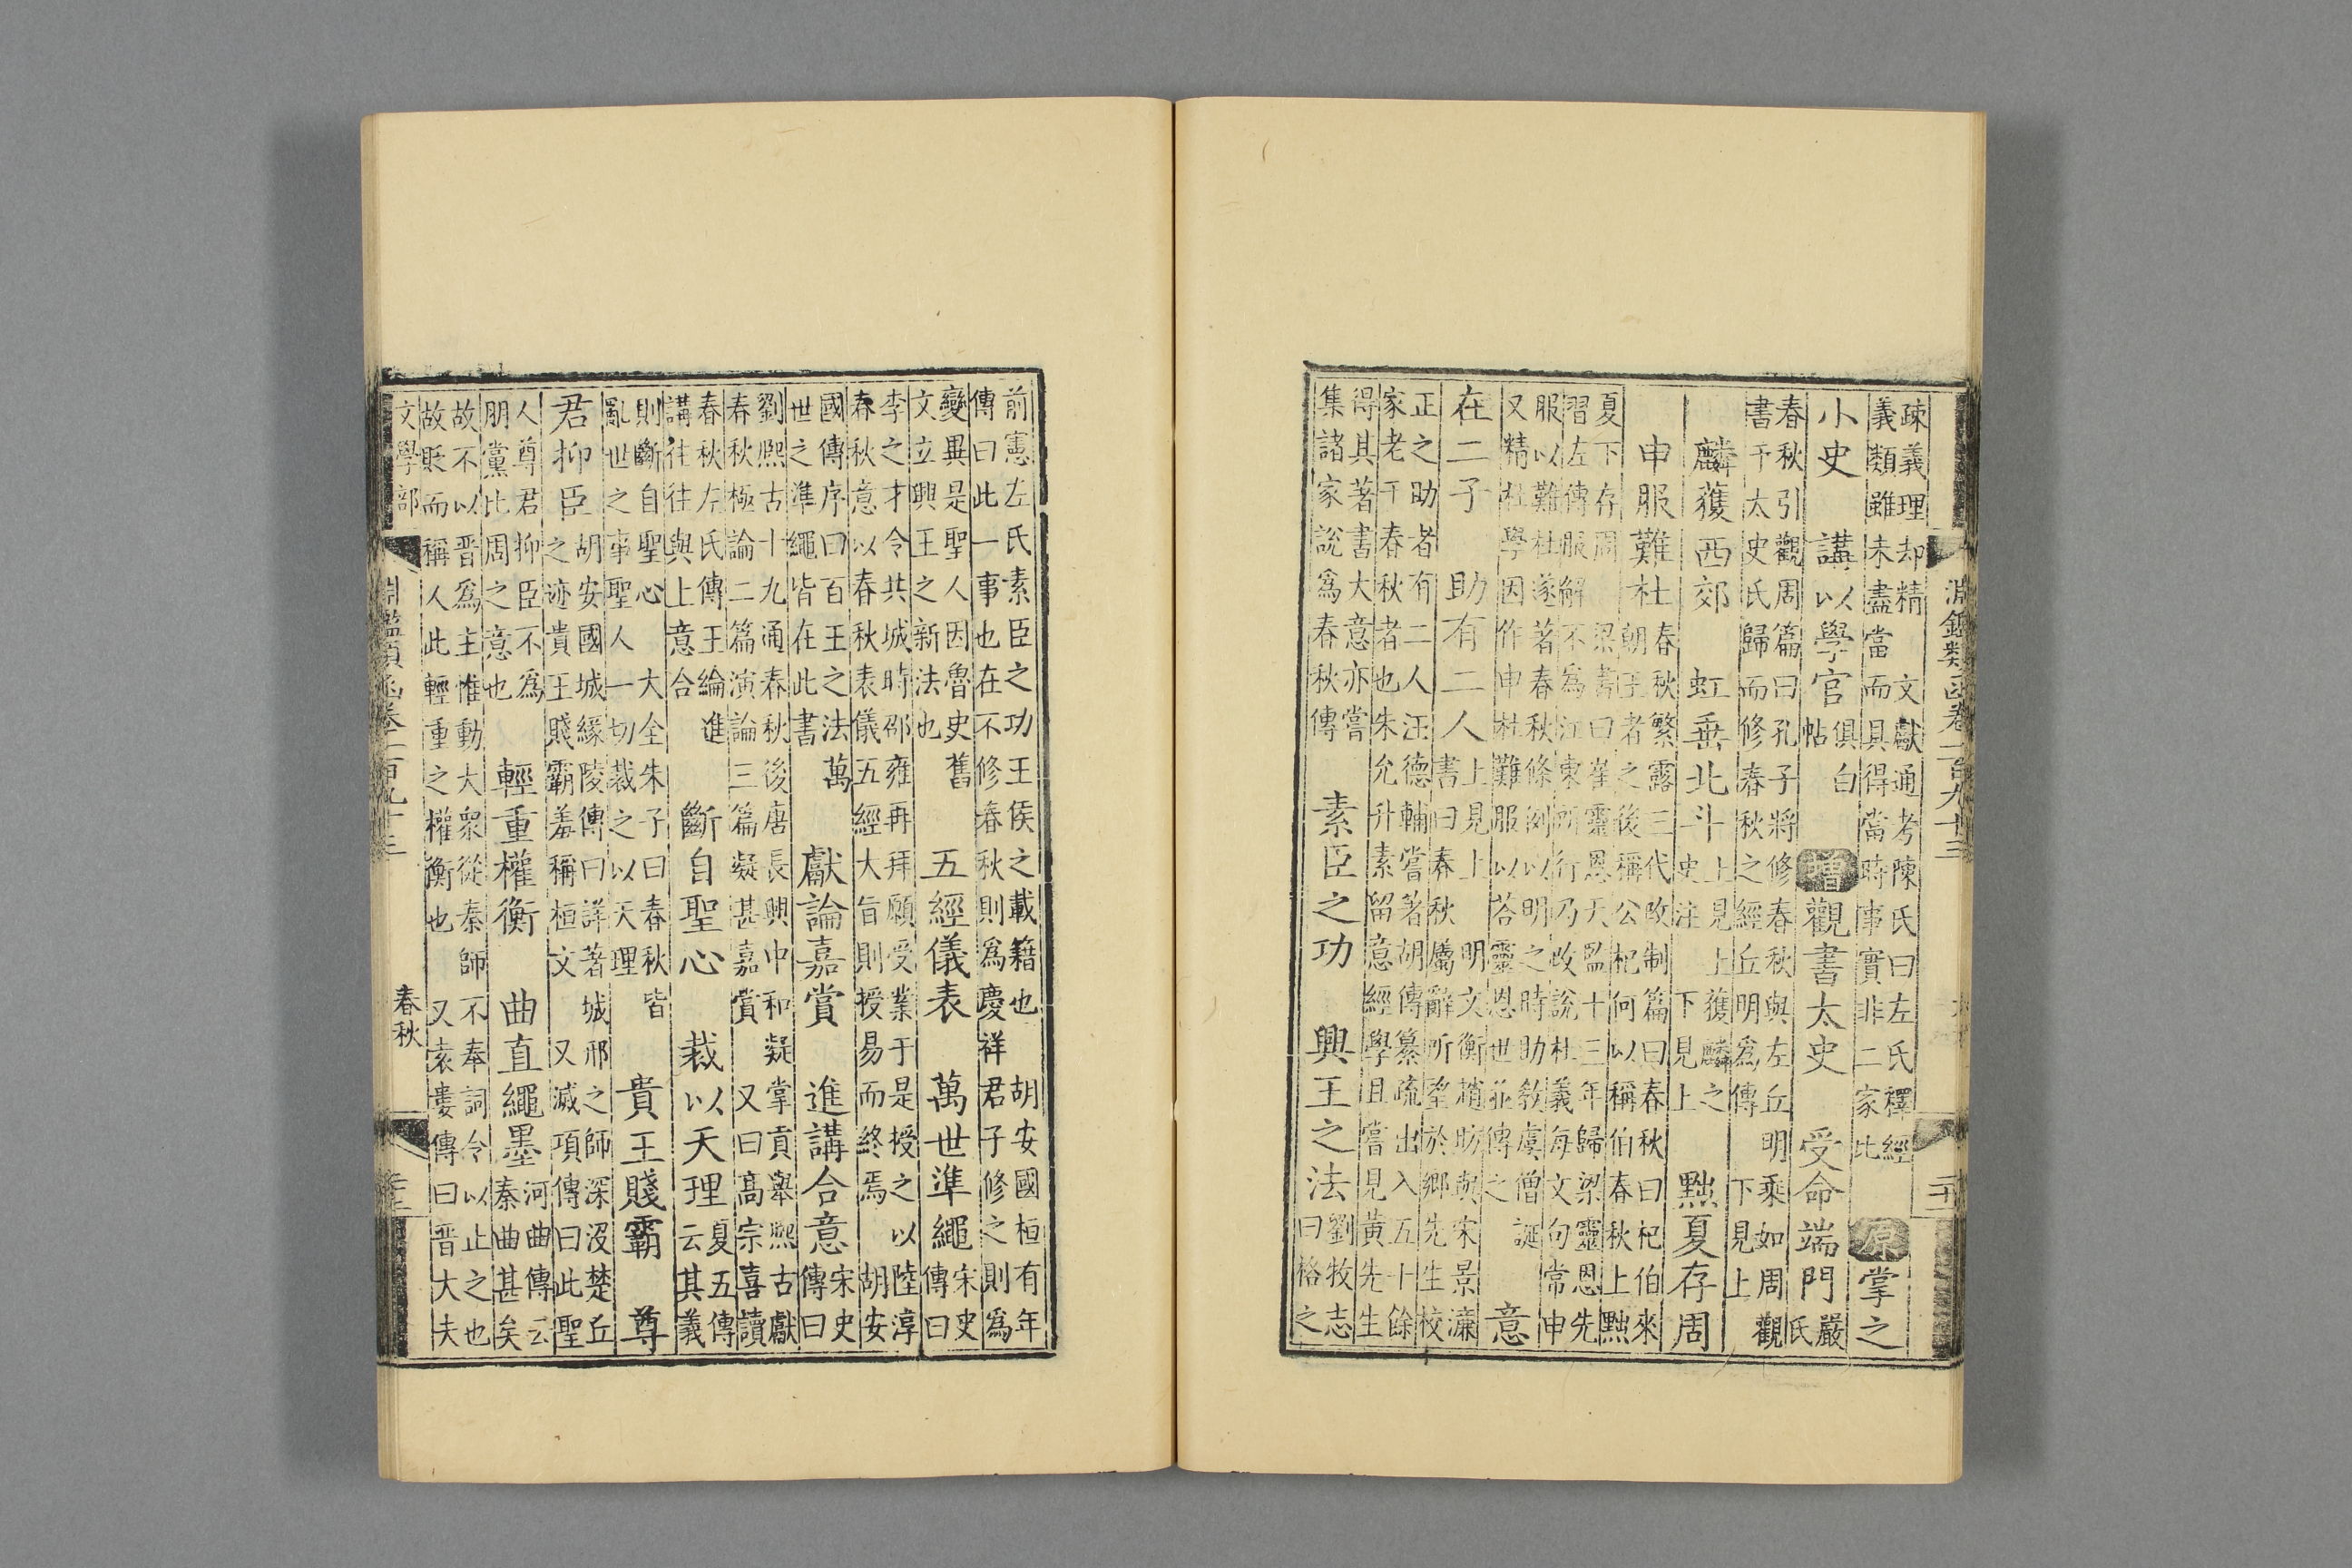 淵鑑類函卷一百九十三
疎義理却精　文獻通考陳氏曰左氏釋經義類雖未盡當而具得當時事實非二家比　原　掌之
小史　講以學官　俱白帖　增　觀書太史　受命端門　嚴氏
春秋引觀周篇曰孔子將修春秋與左丘明乘如周觀書于太史氏歸而修春秋之經丘明爲傳　下見上
麟獲西郊　虹垂北斗　上見上獲麟之史注　下見上　黜夏存周
申服難杜　春秋繁露三代改制篇曰春秋曰杞伯來朝王者之後稱公杞何以稱伯春秋上黜
夏下存周　梁書曰崔靈恩天監十三年歸梁靈恩先習左傳服解不爲江東所行乃改說杜義每文句常申
服以難杜遂著春秋條例以明之時助教虞僧誕又精杜學因作申杜難服以答靈恩世並傳之　意
在二子　助有二人　上見上　明文衡趙昉與宋景濂書曰春秋屬辭所望於鄉先生校
正之助者有二人汪德輔嘗著胡傳纂疏出入五十餘家老于春秋者也朱允升素留意經學且嘗見黃先生
得其著書大意亦嘗集諸家說爲春秋傳　素臣之功　興王之法　劉牧志曰格之
前憲左氏素臣之功王侯之載籍也　胡安國桓有年傳曰此一事也在不修春秋則爲慶祥君子修之則爲
變異是聖人因魯史舊文立興王之新法也　五經儀表　萬世準繩　宋史傳曰
李之才令共城時邵雍再拜願受業于是授之以陸淳春秋意以春秋表儀五經大旨則授易而終焉　胡安
國傳序曰百王之法萬世之準繩皆在此書　獻論嘉賞　進講合意　宋史傳曰
劉熙古十九通春秋後唐長興中和凝掌貢舉熙古獻春秋極論二篇演論三篇凝甚嘉賞　又曰高宗喜讀
春秋左氏傳王綸進講往往與上意合　斷自聖心　裁以天理　夏五傳云其義
則斷自聖心　大全朱子曰春秋皆亂世之事聖人一切裁之以天理　貴王賤霸　尊
君抑臣　胡安國城緣陵傳曰詳著城邢之師深沒楚丘之迹貴王賤霸羞稱桓文　又滅項傳曰此聖
人尊君抑臣不爲朋黨比周之意也　輕重權衡　曲直繩墨　河曲傳云秦曲甚矣
故不以晉爲主惟動大衆從秦師不奉詞令以止之也故貶而稱人此輕重之權衡也　又袁婁傳曰晉大夫
文學部　淵鑑類函卷一百九十三　春秋